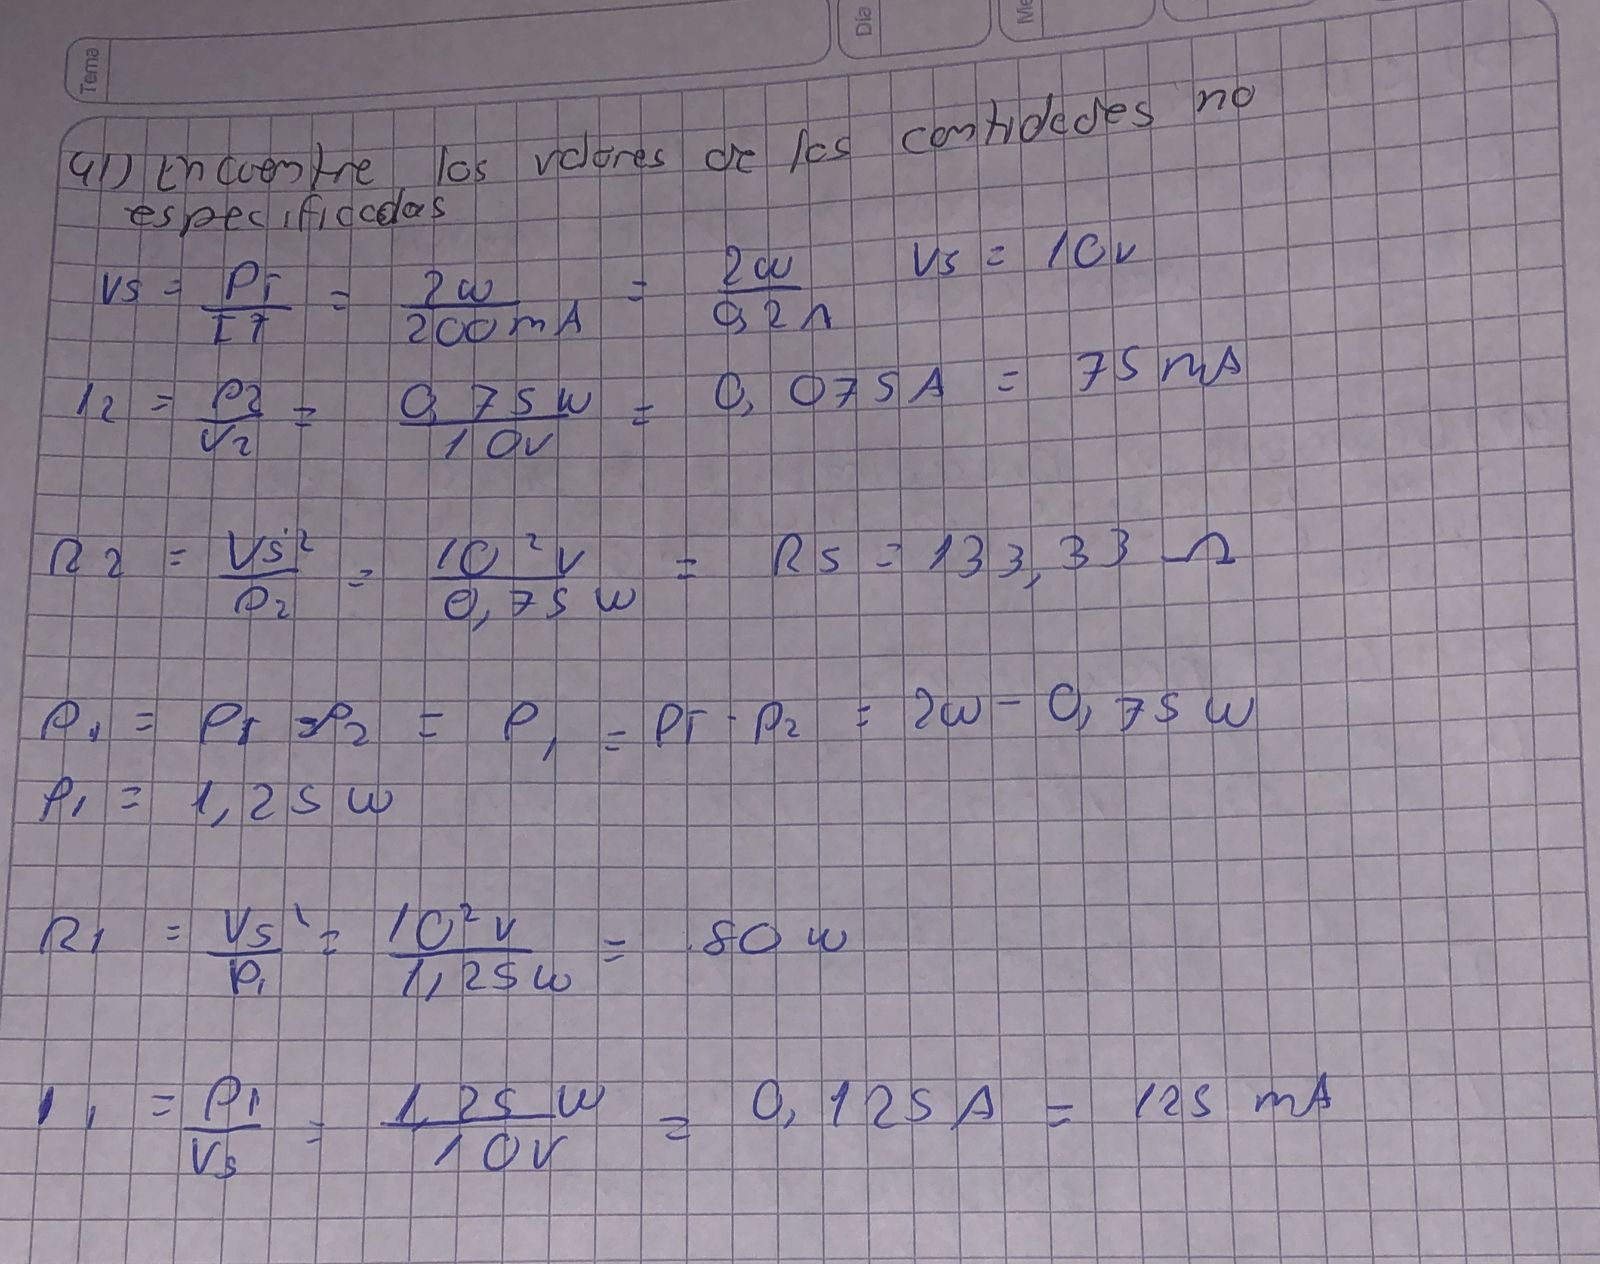 Tema
Día
Me
41) Encuentre los valores de las cantidades no
especificadas
Vs = PT/IT = 2w/200mA = 2w/0,2A Vs = 10v
I2 = P2/V2 = 0,75w/10v = 0,075A = 75mA
R2 = Vs²/P2 = 10²v/0,75w = R5 = 133,33 Ω
P1 = PT - P2 = P1 = PT - P2 = 2w - 0,75w
P1 = 1,25w
R1 = Vs²/P1 = 10²v/1,25w = 80w
I1 = P1/Vs = 1,25w/10v = 0,125A = 125mA